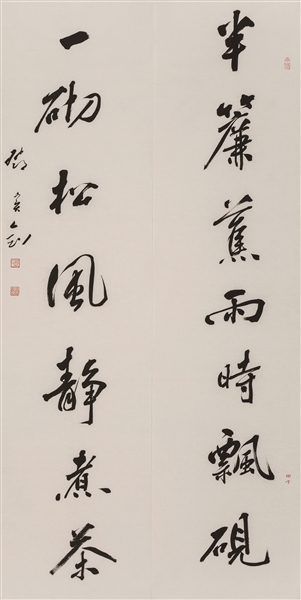 半簾蕉雨時飄硯
一砌松風靜煮茶